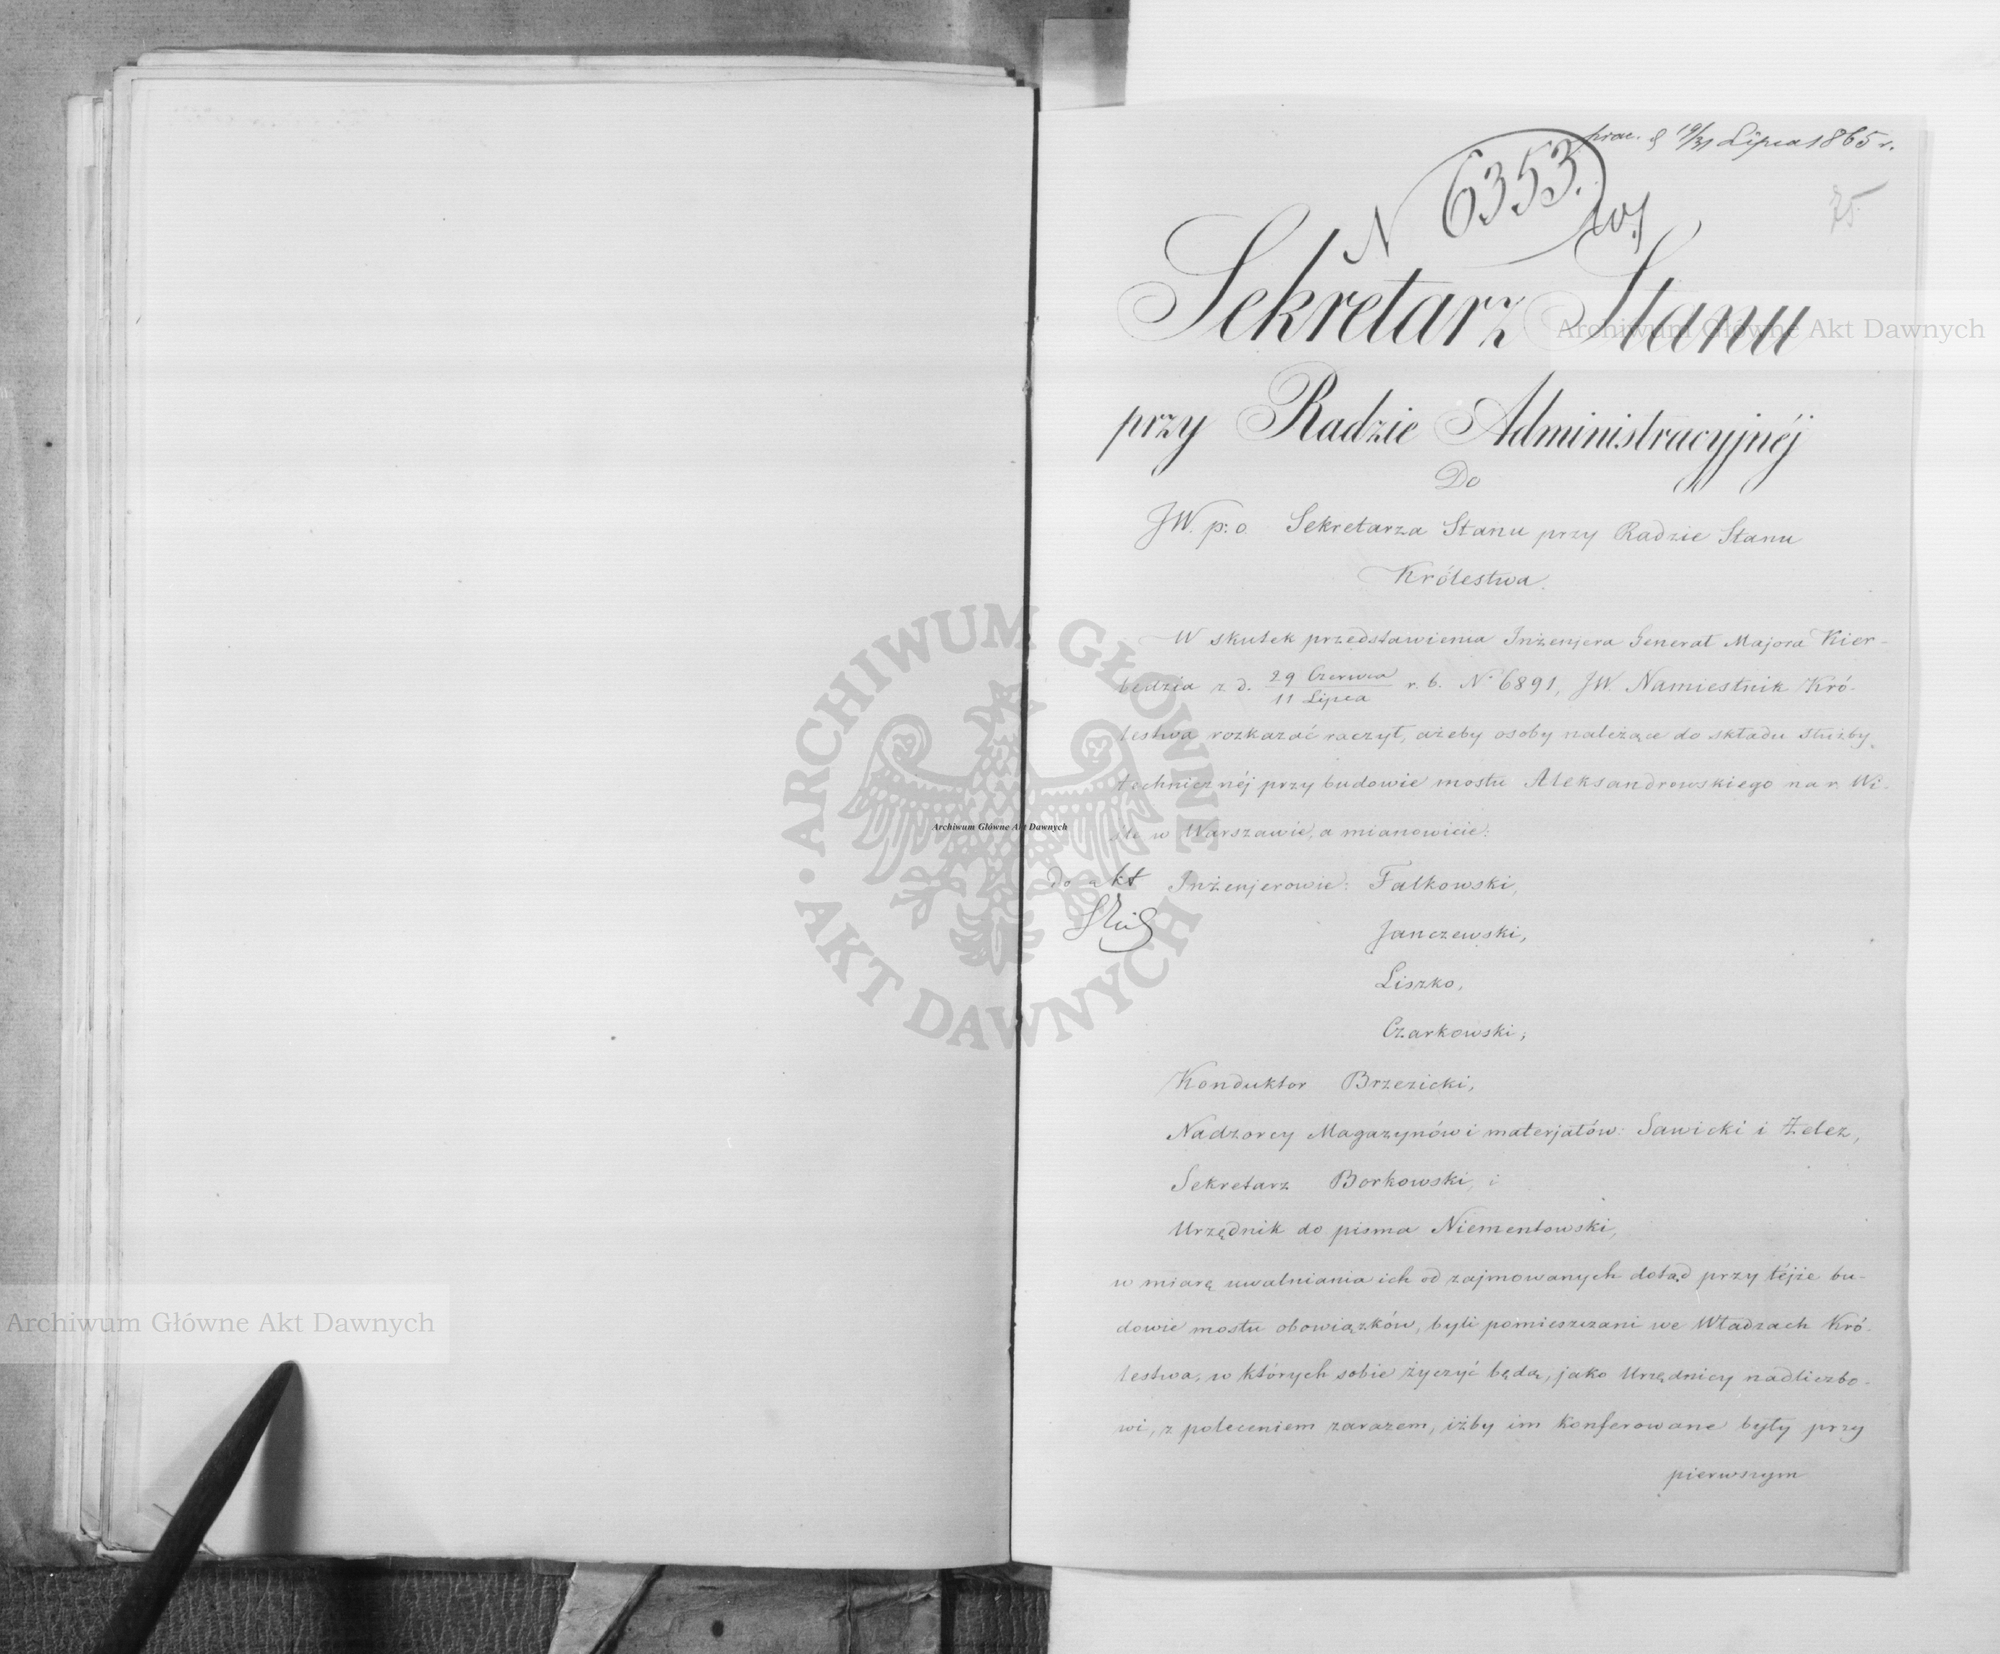 prae. d 19/31 Lipca 1865 r.
N 6353.
75
Sekretarz Stanu
przy Radzie Administracyjnéj
Do
JW. p: o. Sekretarza Stanu przy Radzie Stanu
Królestwa.
W skutek przedstawienia Inżenjera Generał Majora Kier-
bedzia z d. 29 Czerwca / 11 Lipca r. b. N. 6891, JW. Namiestnik Kró-
lestwa rozkazać raczył, ażeby osoby należące do składu służby
technicznéj przy budowie mostu Aleksandrowskiego na r. Wi-
śle w Warszawie, a mianowicie:
do akt
Inżenjerowie: Falkowski,
Janczewski,
Liszko,
Czarkowski;
Konduktor Brzezicki,
Nadzorcy Magazynów i materjałów: Sawicki i Żelez,
Sekretarz Borkowski, i
Urzędnik do pisma Niementowski,
w miarę uwalniania ich od zajmowanych dotąd przy téjże bu-
dowie mostu obowiązków, byli pomieszczani we Władzach Kró-
lestwa, w których sobie życzyć będą, jako Urzędnicy nadliczbo-
wi, z poleceniem zarazem, iżby im konferowane były przy
pierwszym
Archiwum Główne Akt Dawnych
Archiwum Główne Akt Dawnych
Archiwum Główne Akt Dawnych
ARCHIWUM GŁÓWNE AKT DAWNYCH